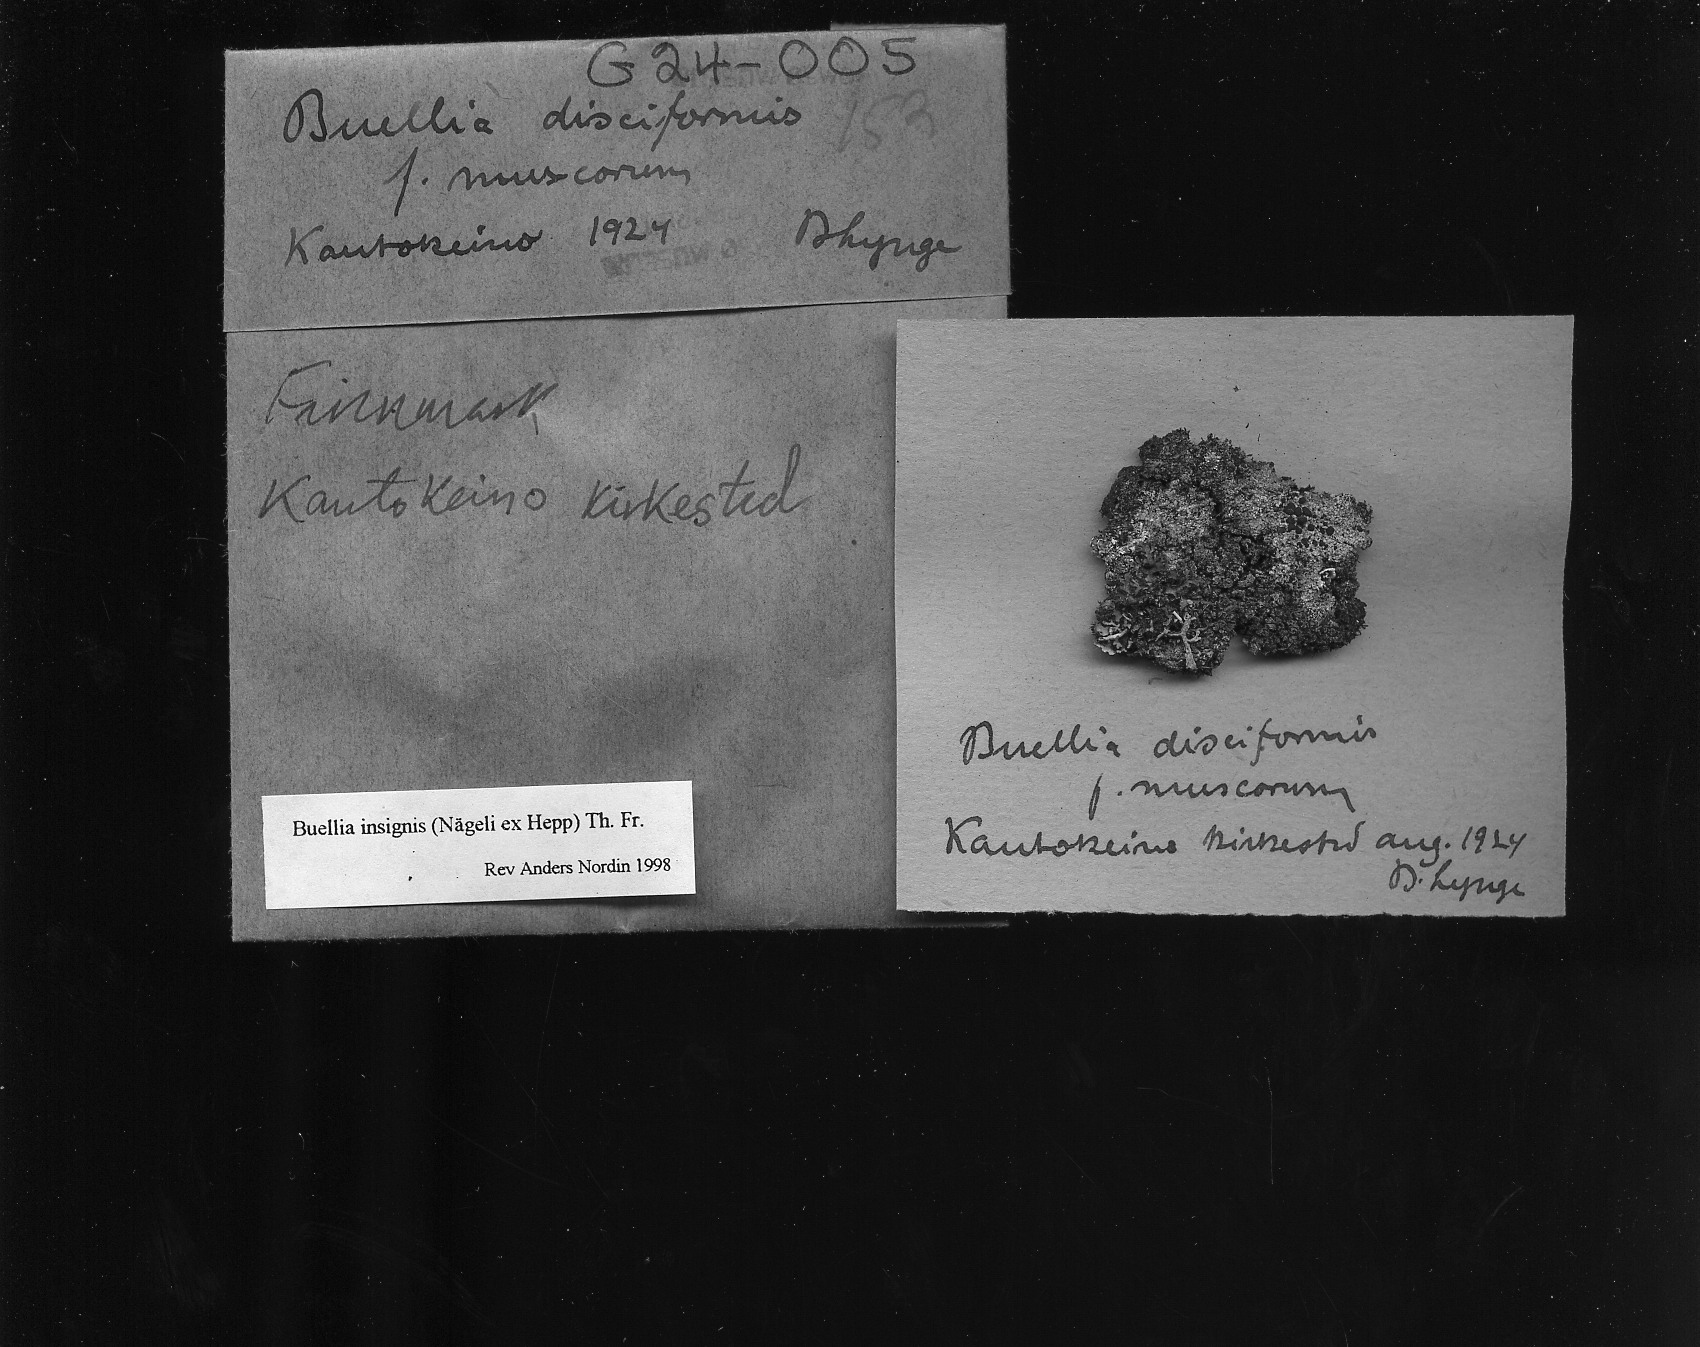 G24-005
Buellia disciformis 153
f. muscorum
Kautokeino 1924 B Lynge
Finnmark
Kautokeino kirkested
Buellia insignis (Nägeli ex Hepp) Th. Fr.
Rev Anders Nordin 1998
Buellia disciformis
f. muscorum
Kautokeino kirkested aug. 1924
B. Lynge